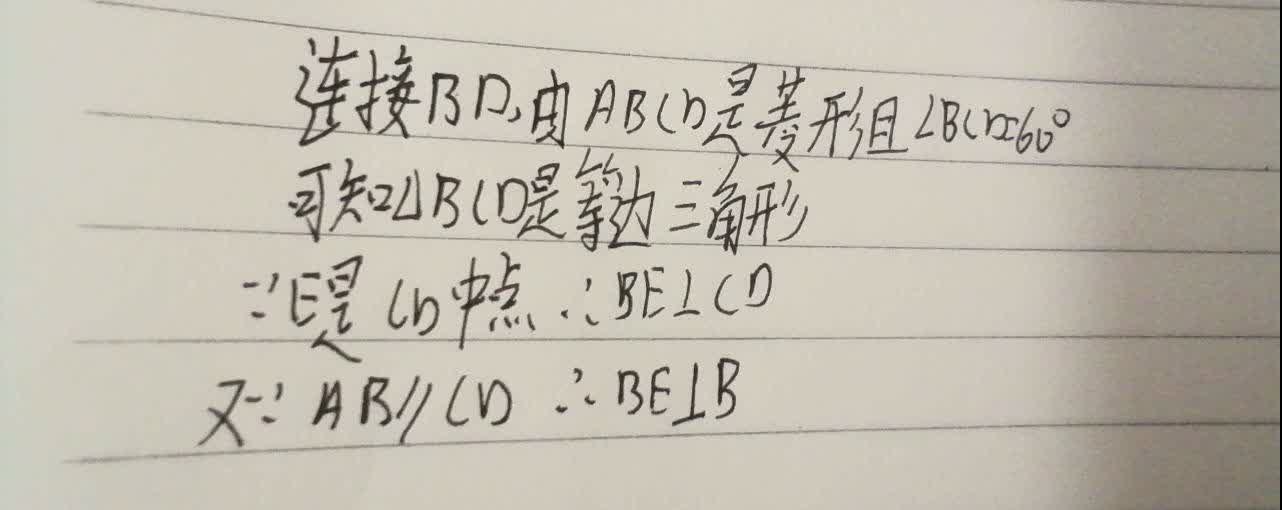 连接BD,由ABCD是菱形且∠BCD=60°
可知△BCD是等边三角形
∵E是CD中点 ∴BE⊥CD
又∵AB//CD ∴BE⊥B